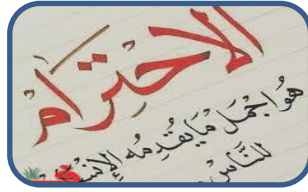 الاحترام
هُوَ اجْمَل مَا يُقَدِمُه الإِنْسَان
لِلنَّاسِ